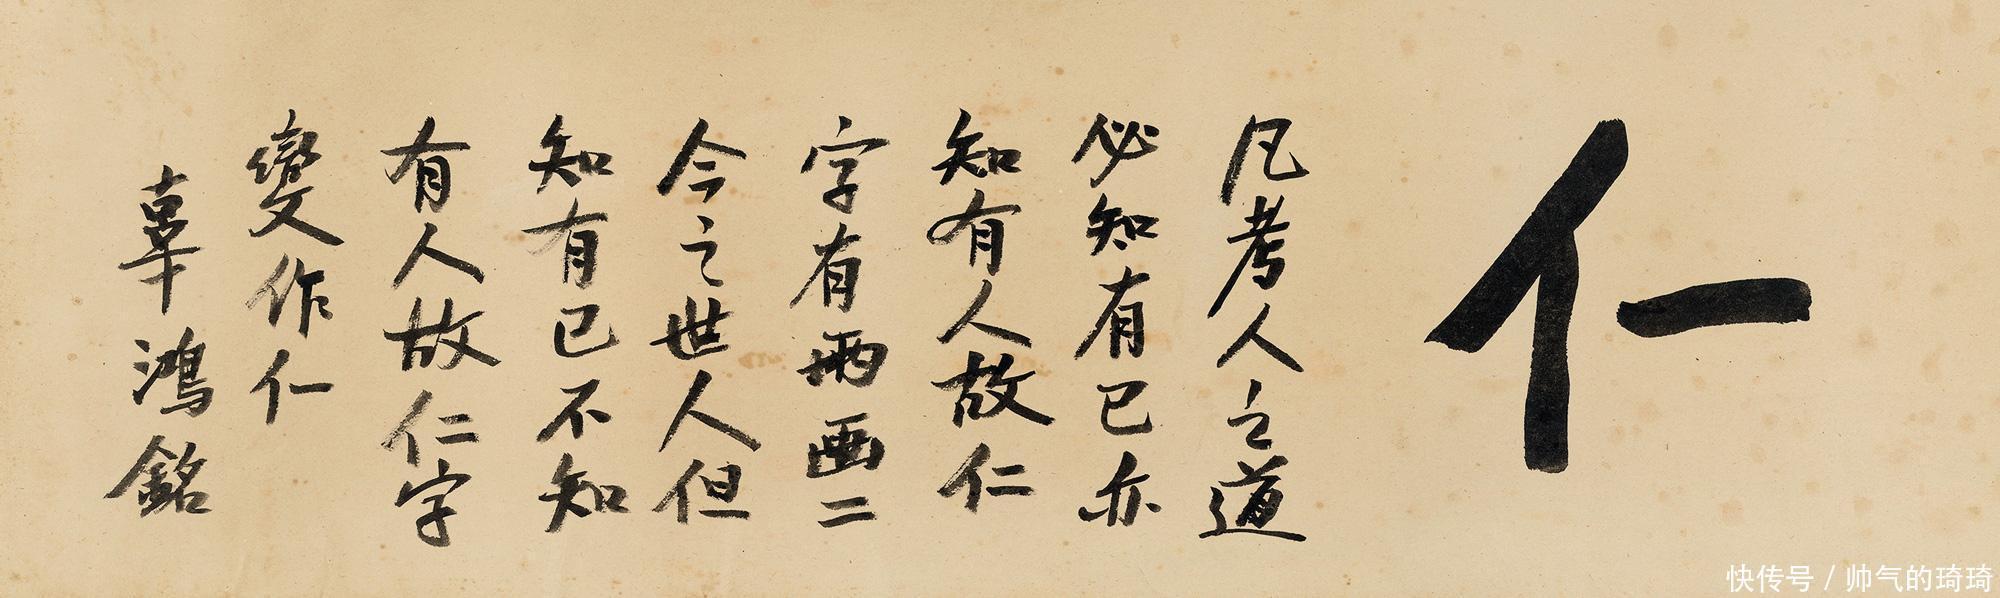 亻一
凡考人之道
必知有己亦
知有人故仁
字有兩画二
今之世人但
知有己不知
有人故仁字
變作亻一
辜鴻銘
快传号 / 帅气的琦琦